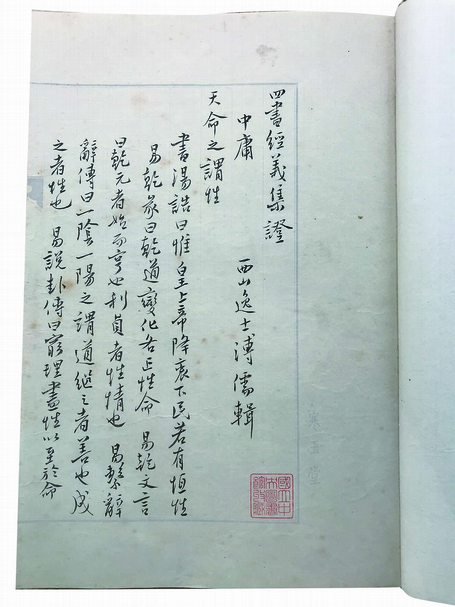 四書經義集證
中庸 西山逸士溥儒輯
天命之謂性
書湯誥曰惟皇上帝降衷下民若有恒性
易乾彖曰乾道變化各正性命 易乾文言
曰乾元者始而亨也利貞者性情也 易繫辭
辭傳曰一陰一陽之謂道繼之者善也成
之者性也 易說卦傳曰窮理盡性以至於命